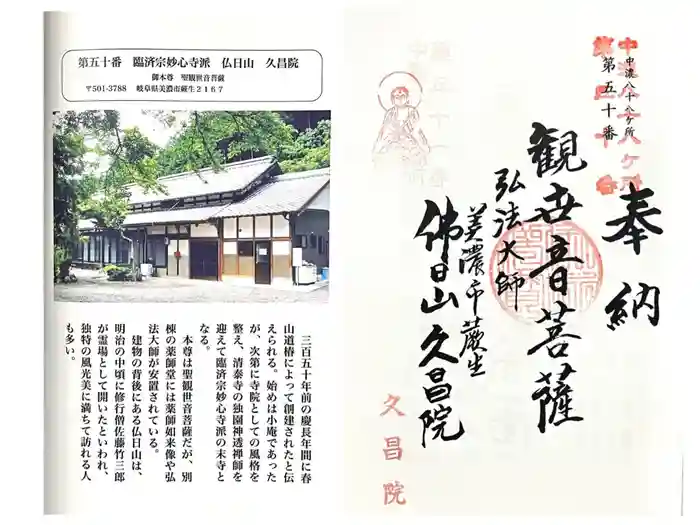 第五十番　臨済宗妙心寺派　仏日山　久昌院
御本尊　聖観世音菩薩
〒501-3788　岐阜県美濃市蕨生2167
三百五十年前の慶長年間に春
山道椿によって創建されたと伝
えられる。始めは小庵であった
が、次第に寺院としての風格を
整え、清泰寺の独園神透禅師を
迎えて臨済宗妙心寺派の末寺と
なる。
本尊は聖観世音菩薩だが、別
棟の薬師堂には薬師如来像や弘
法大師が安置されている。
建物の背後にある仏日山は、
明治の中頃に修行僧佐藤竹三郎
が霊場として開いたといわれ、
独特の風光美に満ちて訪れる人
も多い。
奉納
中濃八十八ヶ所
第五十番
観世音菩薩
弘法大師
美濃市蕨生
佛日山久昌院
久昌院